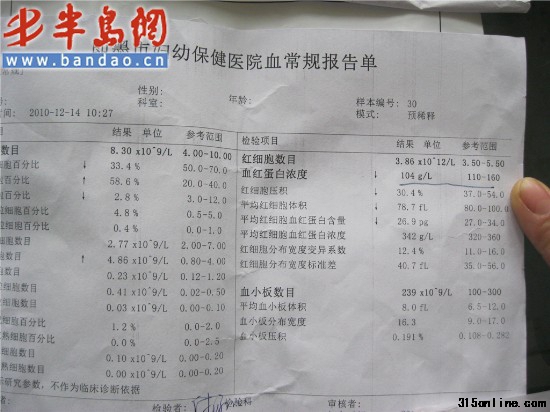 半岛网
www.bandao.cn
妇幼保健医院血常规报告单
性别:
年龄:
样本编号: 30
科室:
模式: 预稀释
时间: 2010-12-14 10:27
目 结果 单位 参考范围
数目 8.30 x10^9/L 4.00-10.00
细胞百分比 ↓ 33.4 % 50.0-70.0
细胞百分比 ↑ 58.6 % 20.0-40.0
胞百分比 ↓ 2.8 % 3.0-12.0
细胞百分比 4.8 % 0.5-5.0
细胞百分比 0.4 % 0.0-1.0
细胞数目 2.77 x10^9/L 2.00-7.00
细胞数目 ↑ 4.86 x10^9/L 0.80-4.00
胞数目 0.23 x10^9/L 0.12-1.20
细胞数目 0.41 x10^9/L 0.02-0.50
细胞数目 0.03 x10^9/L 0.00-0.10
百分比 1.2 % 0.0-2.0
胞百分比 0.0 % 0.0-2.5
胞数目 0.10 x10^9/L 0.00-0.20
胞数目 0.00 x10^9/L 0.00-0.20
研究参数, 不作为临床诊断依据
检验项目 结果 单位 参考范围
红细胞数目 3.86 x10^12/L 3.50-5.50
血红蛋白浓度 ↓ 104 g/L 110-160
红细胞压积 ↓ 30.4 % 37.0-54.0
平均红细胞体积 ↓ 78.7 fL 80.0-100.0
平均红细胞血红蛋白含量 ↓ 26.9 pg 27.0-34.0
平均红细胞血红蛋白浓度 342 g/L 320-360
红细胞分布宽度变异系数 12.4 % 11.0-16.0
红细胞分布宽度标准差 40.7 fL 35.0-56.0
血小板数目 239 x10^9/L 100-300
平均血小板体积 8.0 fL 6.5-12.0
血小板分布宽度 16.3 9.0-17.0
血小板压积 0.191 % 0.108-0.282
检验者: 检验科
审核者:
315online.com